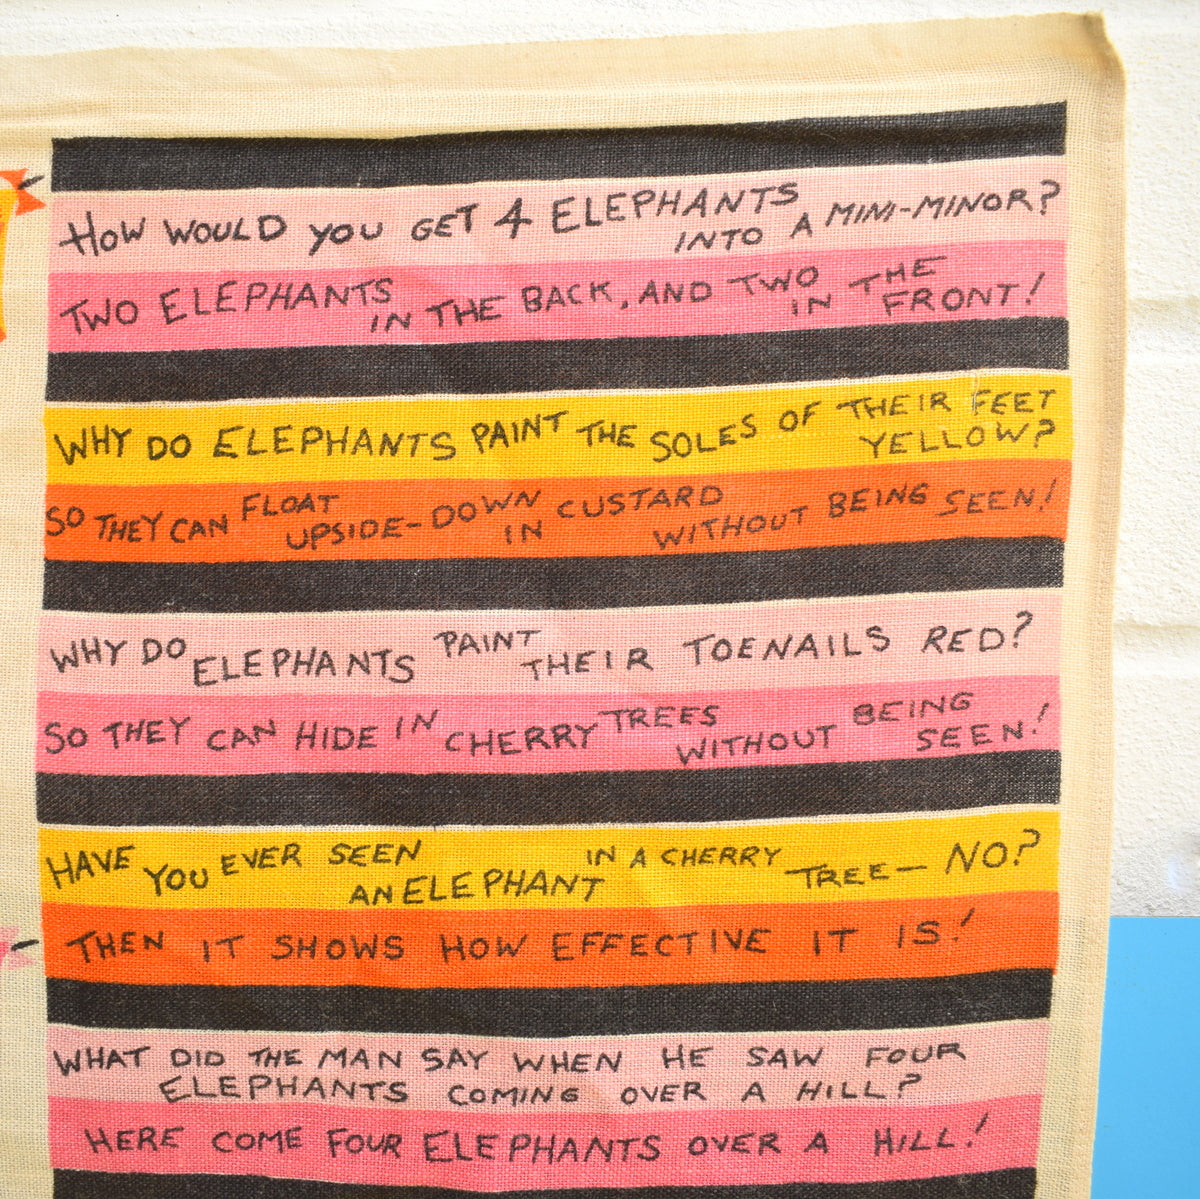 HOW WOULD YOU GET 4 ELEPHANTS
INTO A MINI-MINOR?
TWO ELEPHANTS IN THE BACK, AND TWO IN THE FRONT!
WHY DO ELEPHANTS PAINT THE SOLES OF THEIR FEET
YELLOW?
SO THEY CAN FLOAT UPSIDE-DOWN IN CUSTARD WITHOUT BEING SEEN!
WHY DO ELEPHANTS PAINT THEIR TOENAILS RED?
SO THEY CAN HIDE IN CHERRY TREES WITHOUT BEING SEEN!
HAVE YOU EVER SEEN AN ELEPHANT IN A CHERRY TREE— NO?
THEN IT SHOWS HOW EFFECTIVE IT IS!
WHAT DID THE MAN SAY WHEN HE SAW FOUR
ELEPHANTS COMING OVER A HILL?
HERE COME FOUR ELEPHANTS OVER A HILL!